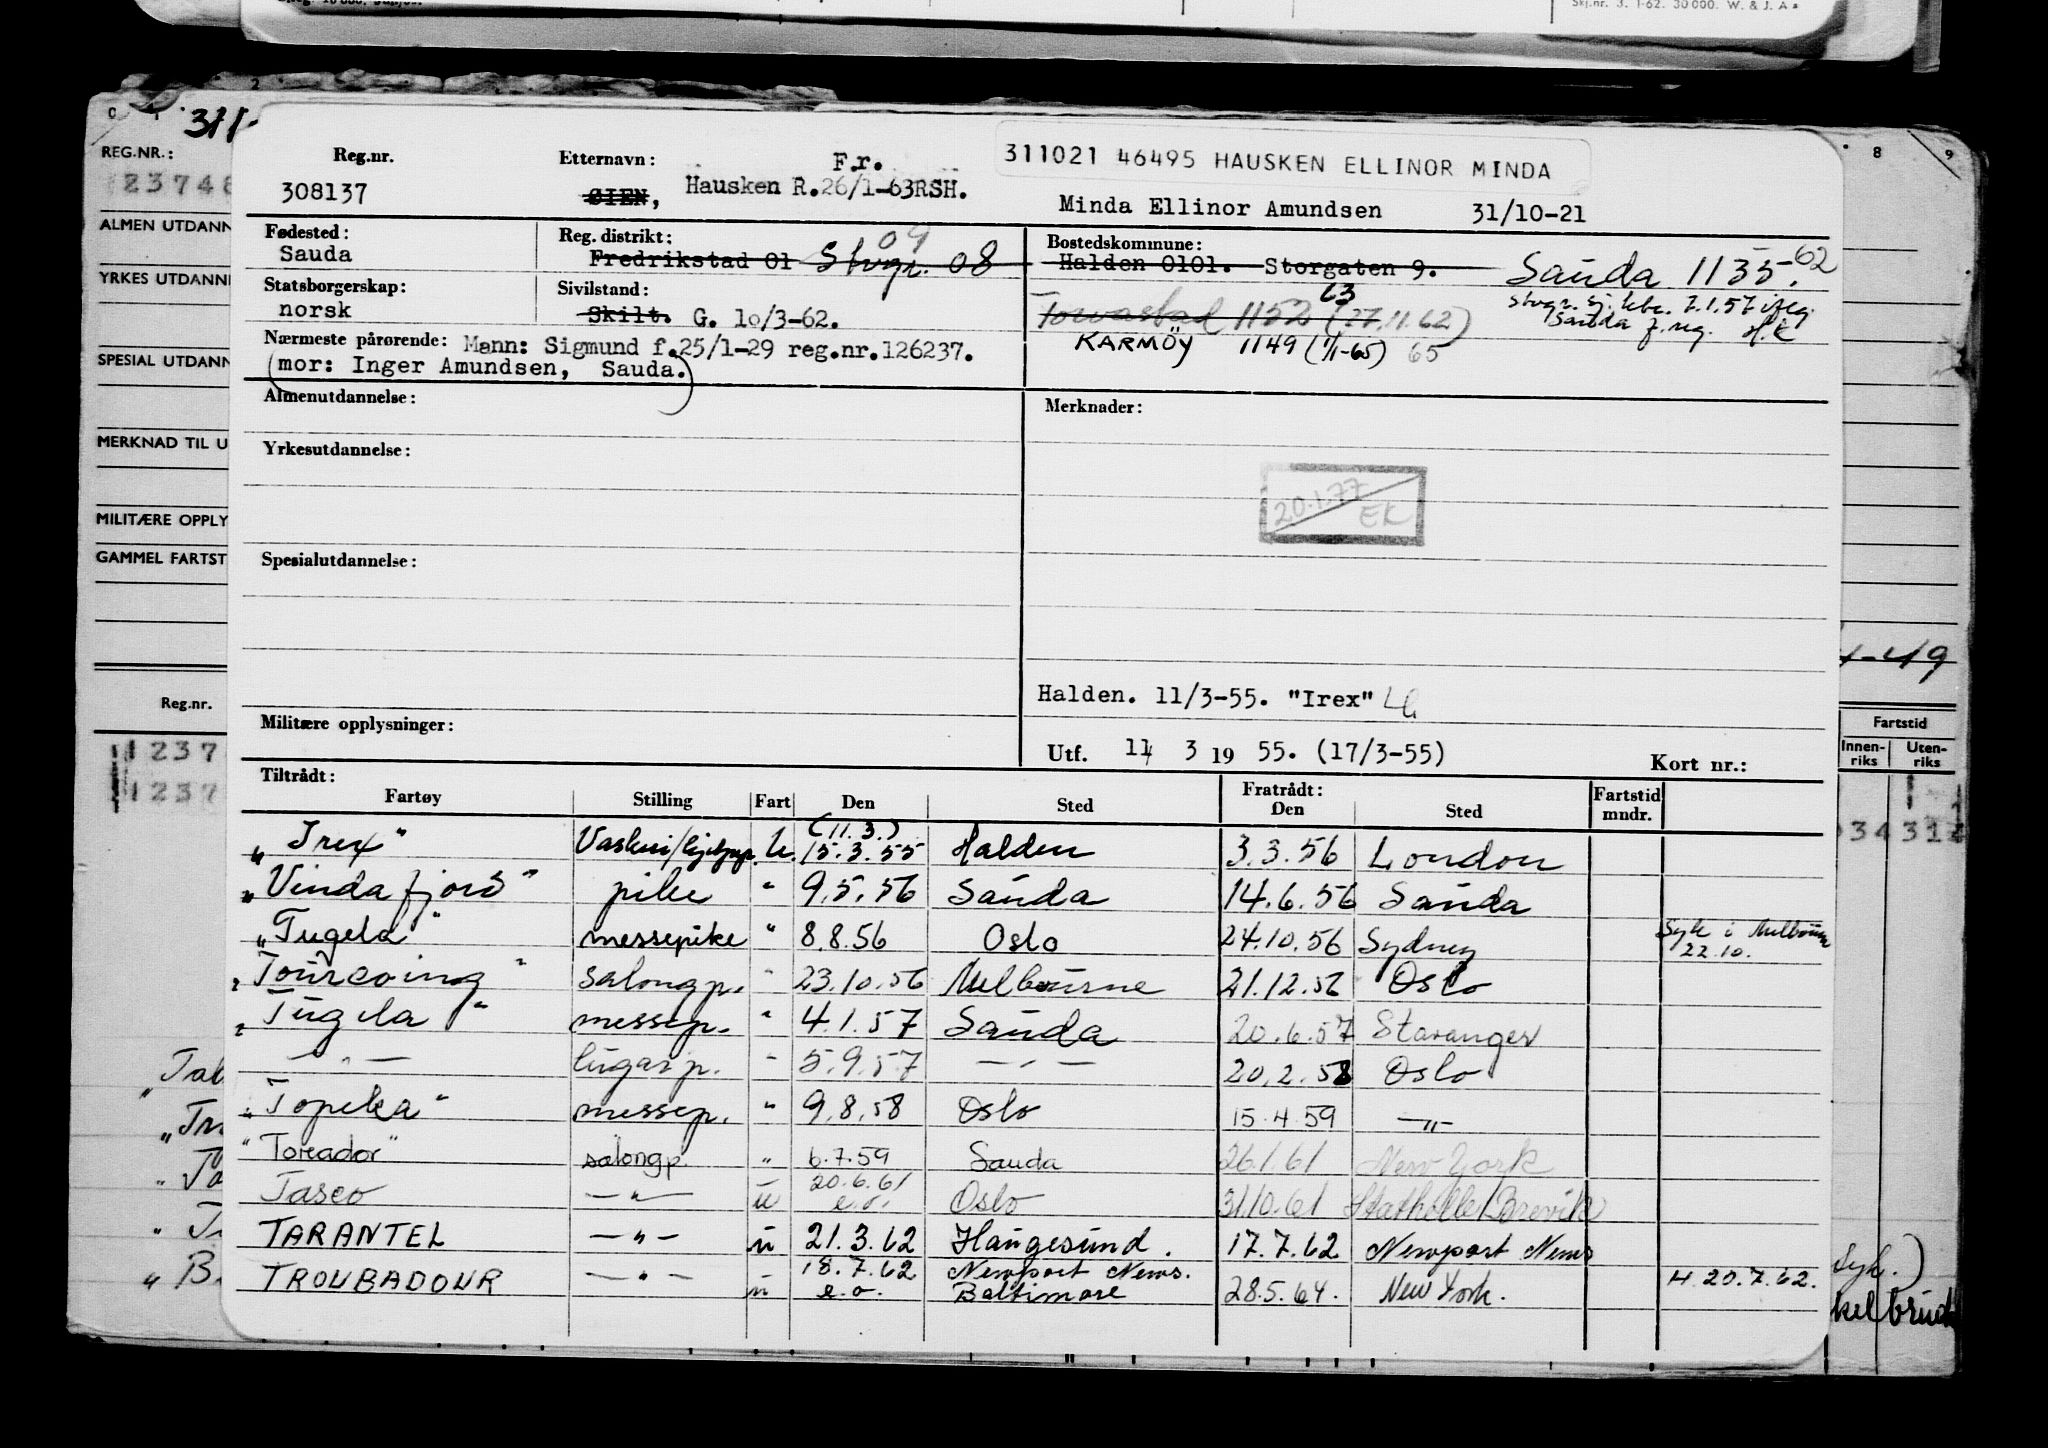 Skj.nr. 3. 1-62. 30 000. W. & J. A s
311-
8 9
REG.NR.:
23748
ALMEN UTDANN
YRKES UTDANN
SPESIAL UTDANN
MERKNAD TIL U
MILITÆRE OPPLY
GAMMEL FARTST
Reg.nr.
1237
1237
Reg.nr. Etternavn: F.r. 311021 46495 HAUSKEN ELLINOR MINDA
308137 ØIEN, Hausken R.26/1-63RSH. Minda Ellinor Amundsen 31/10-21
Fødested: Reg. distrikt: 09 Bostedskommune:
Sauda Fredrikstad 01 Stvgr. 08 Halden 0101. Storgaten 9. Sauda 1135. 62
Statsborgerskap: Sivilstand: 63 Stvgr. sj. 7.1.57
norsk Skilt. G. 10/3-62. Torvastad 1152 (27.11.62) Sauda f. reg. H.K
Nærmeste pårørende: Mann: Sigmund f.25/1-29 reg.nr.126237. KARMÖY 1149 (1/1-65) 65
(mor: Inger Amundsen, Sauda.)
Almenutdannelse: Merknader:
Yrkesutdannelse:
20.1.77 EK
Spesialutdannelse:
Halden. 11/3-55. "Irex"
Militære opplysninger:
Utf. 11 3 19 55. (17/3-55) Kort nr.:
Tiltrådt: Fratrådt:
Fartøy Stilling Fart Den Sted Den Sted Fartstid mndr.
(11.3.)
"Irex" U. 15.3.55 Halden 3.3.56 London
"Vindafjord" pike " 9.5.56 Sauda 14.6.56 Sauda
"Tugela" messepike " 8.8.56 Oslo 24.10.56 Sydney Syk i Melbourne 22.10.
"Tourcoing" salongp. " 23.10.56 Melbourne 21.12.56 Oslo
"Tugela" messep. " 4.1.57 Sauda 20.6.57 Stavanger
— " — lugarp. " 5.9.57 — " — 20.2.58 Oslo
"Topeka" messep. " 9.8.58 Oslo 15.4.59 — " —
"Toreador" salongp. " 6.7.59 Sauda 26.1.61 New York
20.6.61
Tasco — " — u e.o. Oslo 31.10.61 Stathelle/Brevik
TARANTEL — " — u 21.3.62 Haugesund. 17.7.62 Newport News
18.7.62 Newport News.
TROUBADOUR — " — u e.o. Baltimore 28.5.64. New York. H 20.7.62.
4-49
Fartstid
Innen-riks Uten-riks
34 31
Syk.)